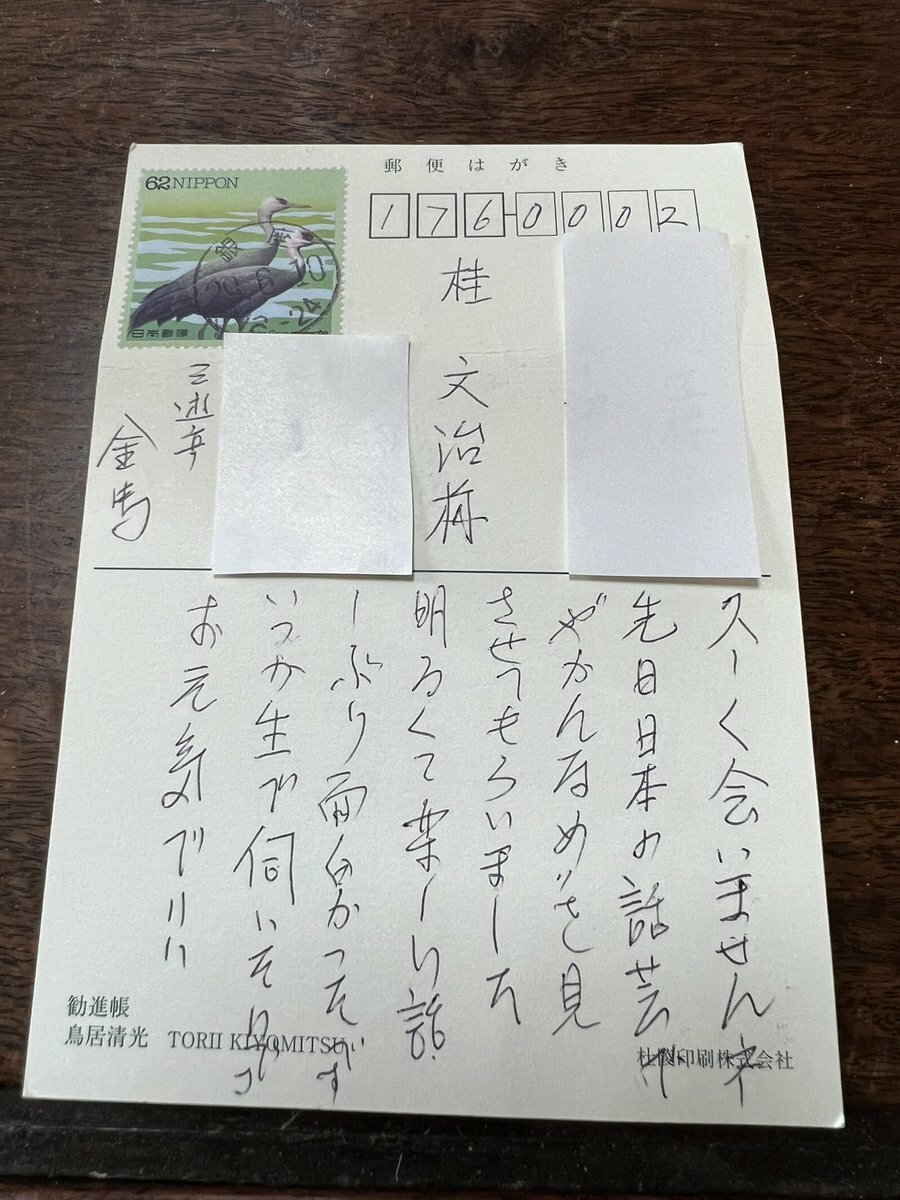 郵便はがき
62 NIPPON
日本郵便
1760002
桂 文治 様
三遊亭
金馬
久しく会いませんネ
先日日本の話芸で
やかんなめ〃を見
させてもらいました
明るくて楽しい話
しぶり面白かったです
いつか生で伺いたいです
お元気で!!!
勧進帳
鳥居清光 TORII KIYOMITSU
印刷株式会社